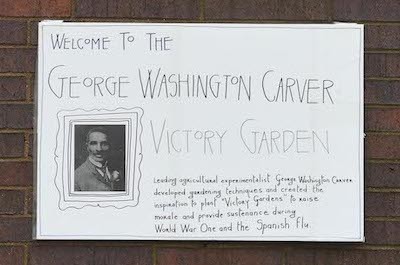 WELCOME TO THE
GEORGE WASHINGTON CARVER
VICTORY GARDEN
Leading agricultural experimentalist George Washington Carver
developed gardening techniques and created the
inspiration to plant "Victory Gardens" to raise
morale and provide sustenance during
World War One and the Spanish Flu.